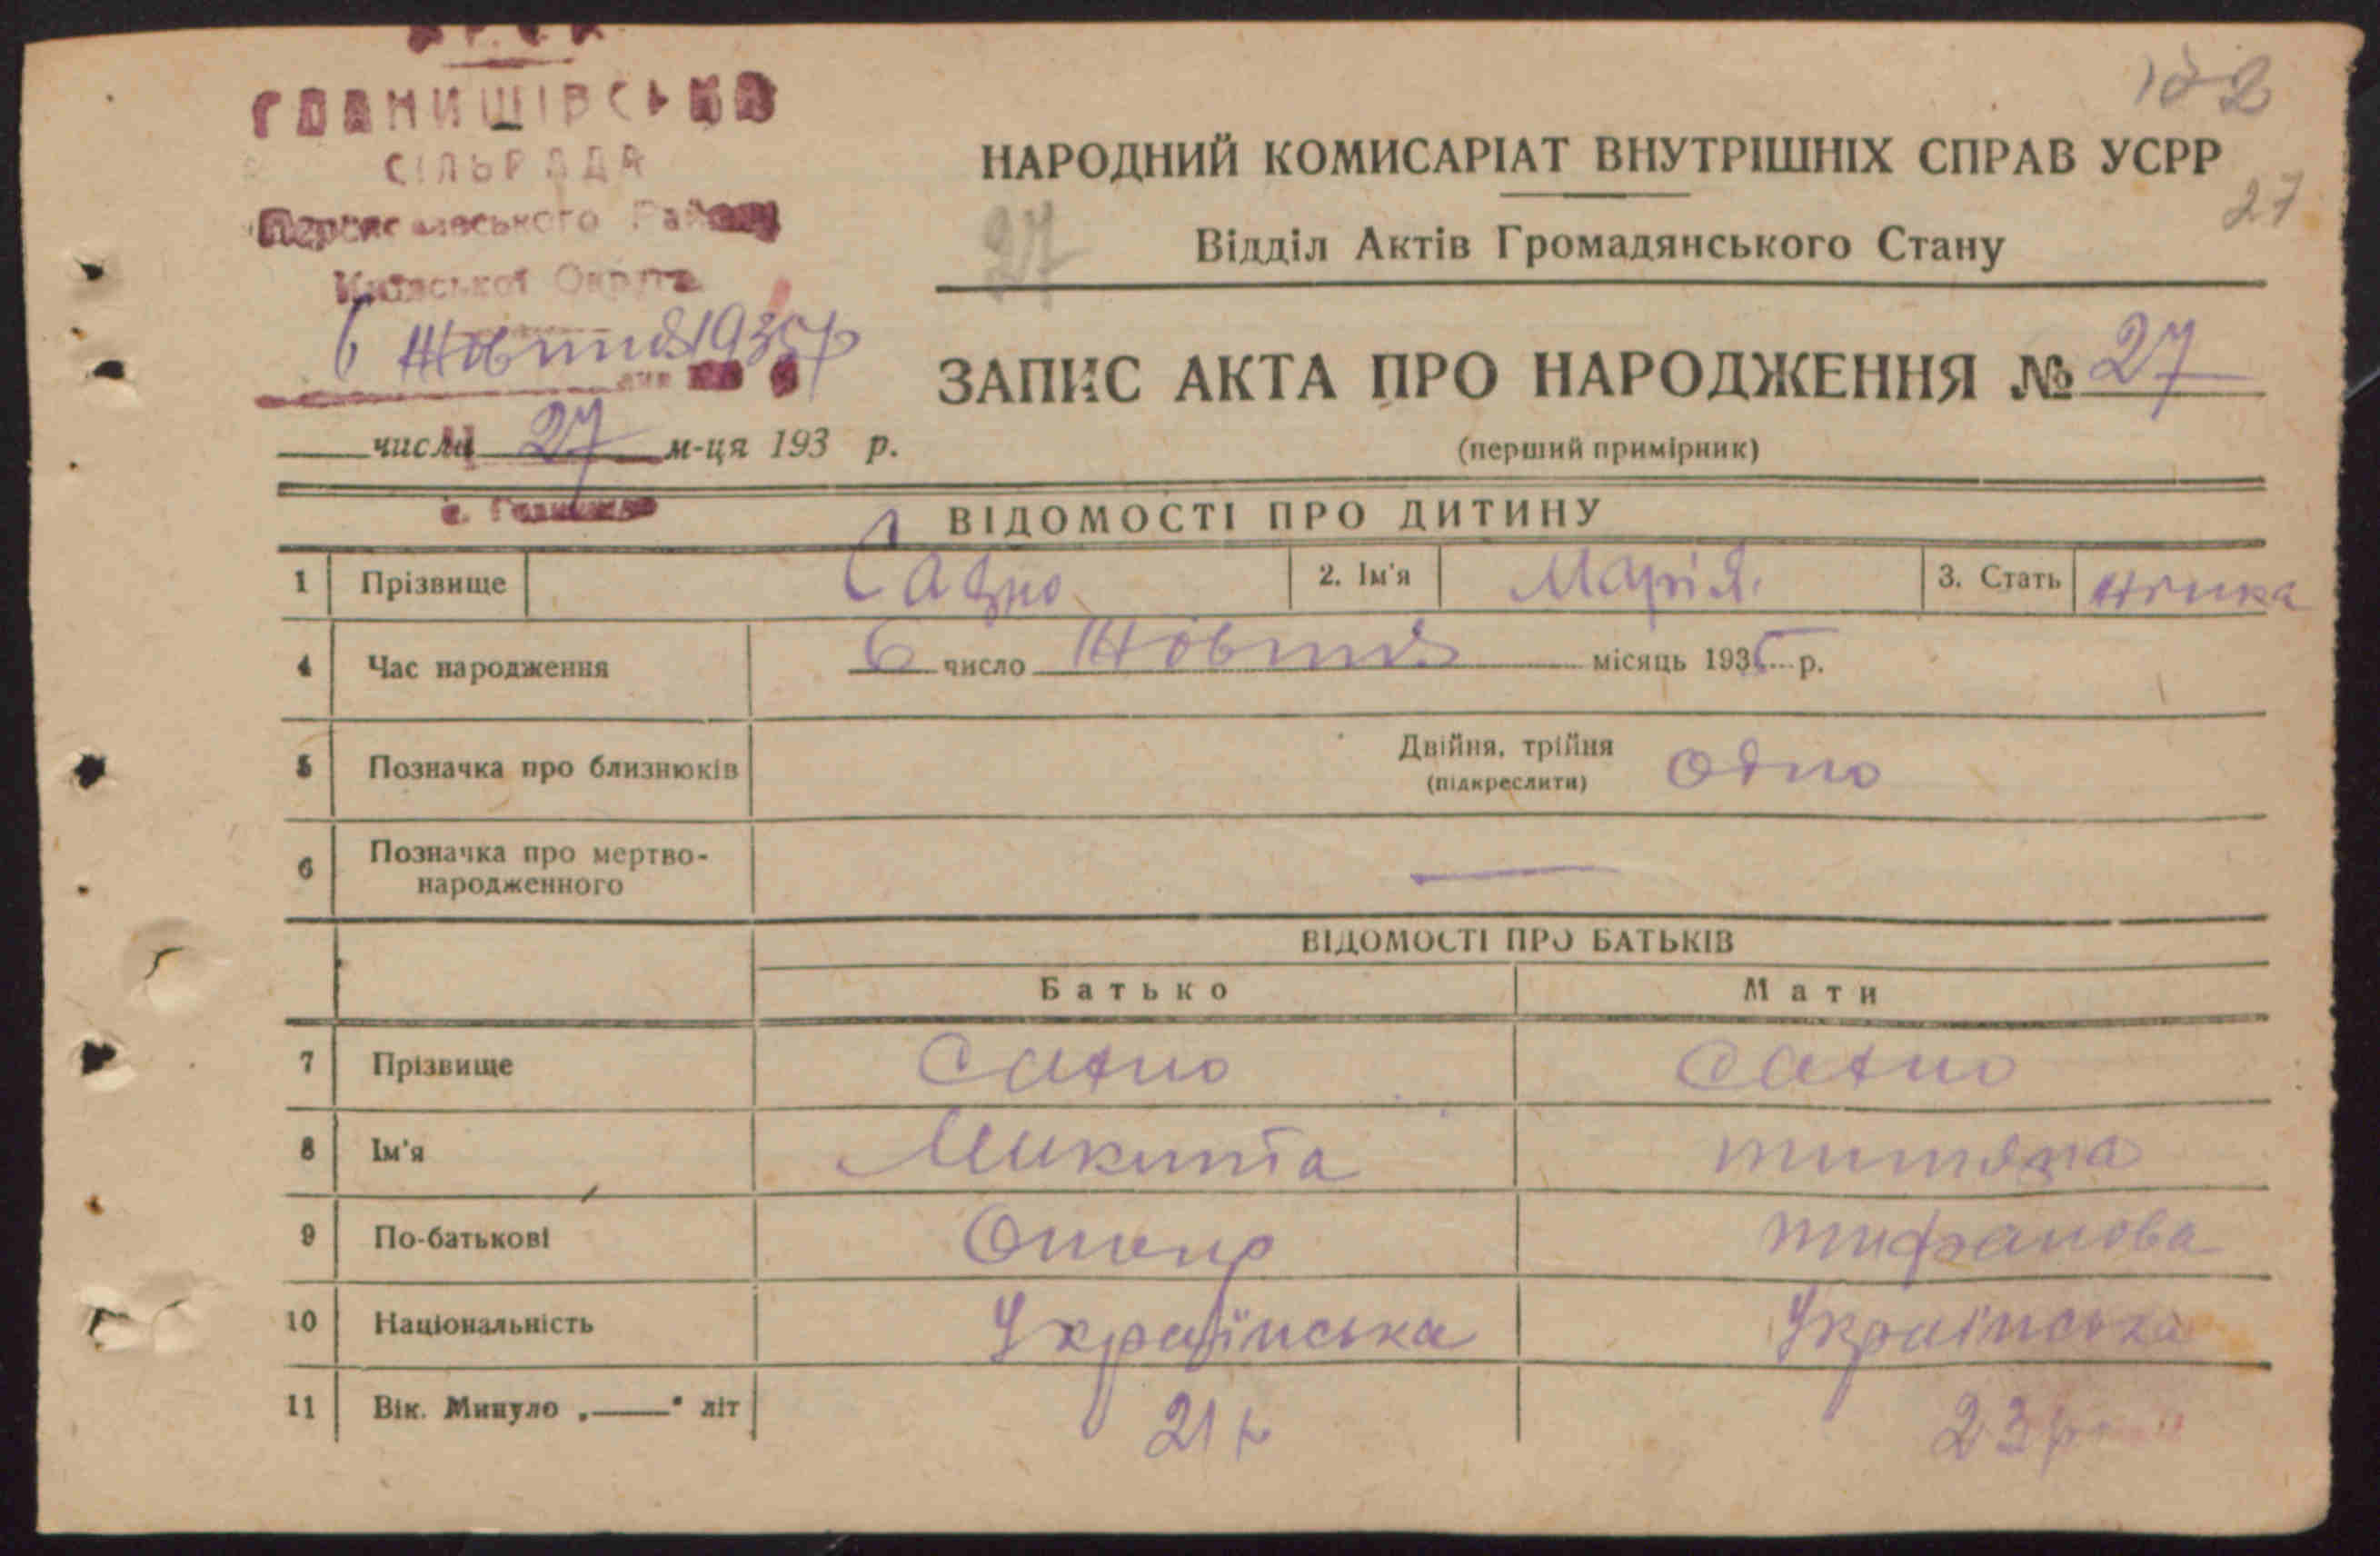 ГЛАНИШІВСЬКА
СІЛЬРАДА
Переяславського Району
Київської Округи
6 Жовтня 1935 р
182
НАРОДНИЙ КОМИСАРІАТ ВНУТРІШНІХ СПРАВ УСРР
27
27
Відділ Актів Громадянського Стану
ЗАПИС АКТА ПРО НАРОДЖЕННЯ № 27
числа 27 м-ця 193 р.
(перший примірник)
ВІДОМОСТІ ПРО ДИТИНУ
1 Прізвище 2. Ім'я Марія. 3. Стать
4 Час народження 6 число Жовтня місяць 1935 р.
5 Позначка про близнюків Двійня, трійня одно
(підкреслити)
6 Позначка про мертво-
народженного
ВІДОМОСТІ ПРО БАТЬКІВ
Батько Мати
7 Прізвище
8 Ім'я Микита
9 По-батькові
10 Національність Українська Українська
11 Вік. Минуло „——“ літ 21 р 23 р